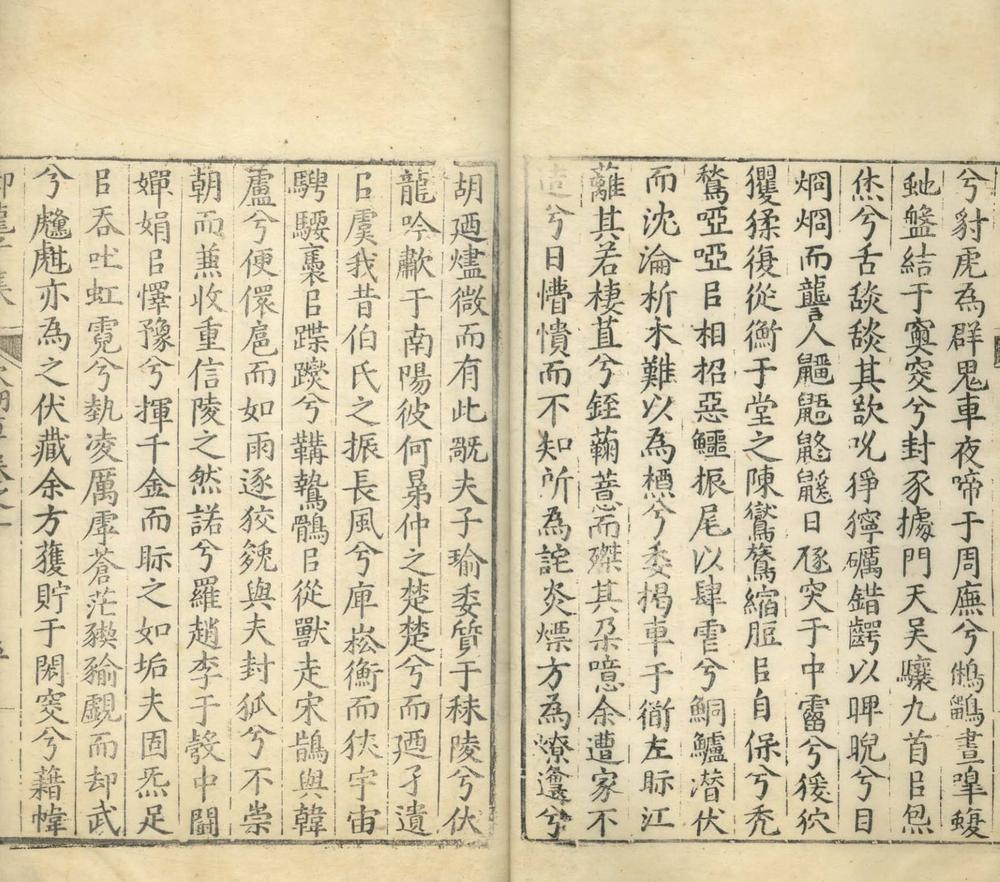 兮豺虎為群鬼車夜啼于周廡兮鵂鶹晝喤蝮
虵盤結于窔兮封豕據門天吴驤九首㠯炰
烋兮舌舕舕其欲吮猙獰礪錯齶以睥睨兮目
烱烱而讋人鼺鼯鼨鼷日豗突于中霤兮猨狖
玃猱復從衡于堂之陳鸑鷟縮脰㠯自保兮禿
鶖啞啞㠯相招惡鱷振尾以肆雹兮鮦鱸潛伏
而沈淪析木難以為槱兮委揭車于術左眎江
蘺其若棲苴兮銍蘜蒠而殩其朶噫余遭家不
造兮日懵憒而不知所為詫炎熛方為燎𤑔兮
胡廼燼微而有此戬夫子瑜委質于秣陵兮伏
龍吟歗于南陽彼何曑仲之楚楚兮而廼孑遺
㠯虞我昔伯氏之振長風兮庫崧衡而狹宇宙
騁騕褭㠯蹀躞兮鞲鷙鶻㠯從獸走宋鵲與韓
盧兮便儇扈而如雨逐狡㕙與夫封狐兮不崇
朝而蒹收重信陵之然諾兮羅趙李于彀中闢
嬋娟㠯懌豫兮揮千金而眎之如垢夫固炁足
㠯吞吐虹霓兮埶凌厲虖蒼茫猰㺄覷而却武
兮魑魋亦為之伏藏余方獲貯于閑窔兮藉幃